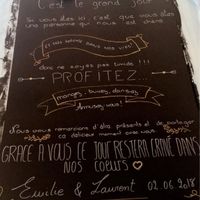 C'est le grand jour
Si vous êtes ici c'est que vous êtes
une personne qui nous est chère
ET NOUS SOMMES DANS NOS VIES!
donc ne soyez pas timide !!!
PROFITEZ...
mangez, buvez, dansez
Amusez vous!
Nous vous remercions d'être présents et de partager
ce délicieux moment avec nous.
GRACE A VOUS CE JOUR RESTERA GRAVÉ DANS
NOS COEURS
Emilie & Laurent 02.06.2018